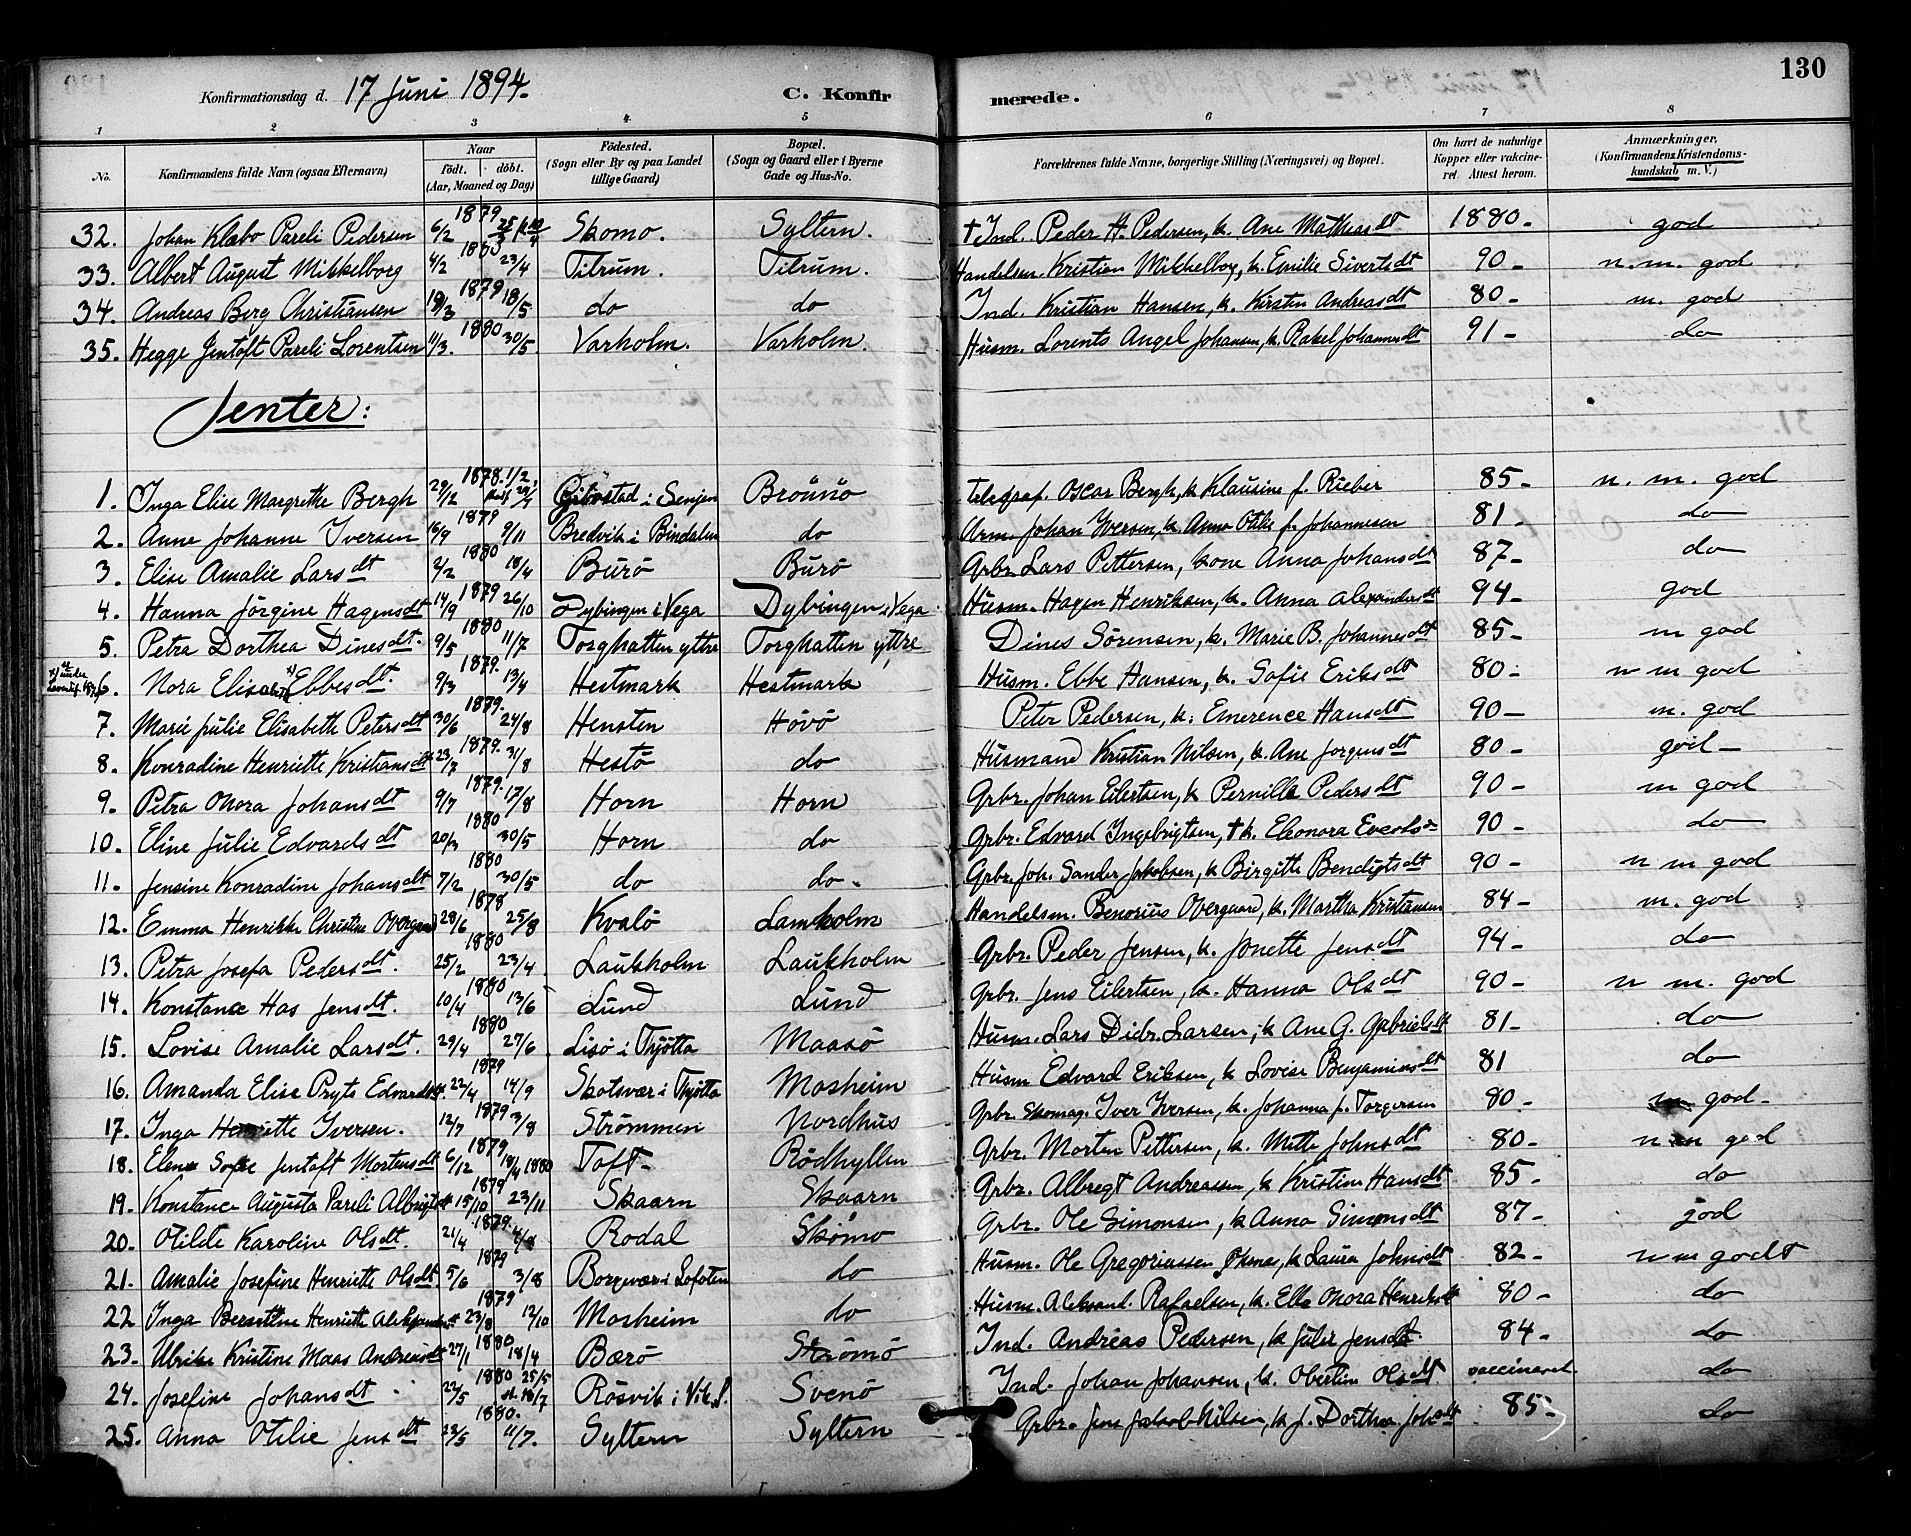 130
Konfirmationsdag d. 17 Juni 1894. C. Konfirmerede.
1 2 3 4 5 6 7 8
No. Konfirmandens fulde Navn (ogsaa Efternavn) Naar födt. döbt. (Aar, Maaned og Dag) Födested. (Sogn eller By og paa Landet tillige Gaard) Bopæl. (Sogn og Gaard eller i Byerne Gade og Hus-No. Forældrenes fulde Navne, borgerlige Stilling (Næringsvei) og Bopæl. Om havt de naturlige Kopper eller vakcineret. Attest herom. Anmærkninger, (Konfirmandens Kristendomskundskab m. V.)
32. Johan Klæbo Pareli Pedersen 6/2 1879 Skomo. Syltern. † Ind. Peder H. Pedersen, k. Ane Mathiasdt 1880- god
33. Albert August Mikkelborg 4/2 1880 23/4 Titrum. Titrum. Handelsm. Kristian Mikkelborg, k. Emilie Sivertsdt 90- n.m. god
34. Andreas Berg Christiansen 19/3 1879 18/5 do do Ind. Kristian Hansen, k. Kirsten Andreasdt 80- m. god
35. Hegge Jentoft Pareli Lorentsen 11/3. 1880 30/5 Varholm. Varholm. Husm. Lorents Angel Johansen, k. Rakel Johannesdt 91- do
Jenter:
1. Inga Elise Margrethe Bergh 29/2 1878. 1/2 Gibostad i Senjen Brönnö Telegraf. Oscar Bergh, k Klausine f. Rieber 85- n. m. god
2. Anne Johanne Iversen 16/9 1879 9/11 Bredvik i Bindalen do Arm. Johan Iversen, k. Anna Otilie f. Johannesen 81- do
3. Elise Amalie Larsdt 2/2 1880 18/4 Burö Burö Grbr. Lars Pettersen, kone Anna Johansdt 87- do
4. Hanna Jörgine Hagensdt 14/9 1879 26/10 Dybingen i Vega Dybingen i Vega Husm. Hagen Henriksen, k. Anna Alexandersdt 94- god
5. Petra Dorthea Dinesdt. 9/5 1880 11/7 Torghatten yttre Torghatten yttre Dines Sörensen, k. Marie B. Johannesdt 85- m god
6. Nora Elisabeth Ebbesdt. 9/3 1879. 13/4 Hestmark Hestmark Husm. Ebbe Hansen, k. Sofie Eriksdt 80- n m god
7. Marie Julie Elisabeth Petersdt 30/6 1879. 24/8 Hensten Hövö Peter Pedersen, k. Emerence Hansdt 90- m. god
8. Konradine Henriette Kristiansdt 23/7 1879. 31/8 Hestö do Husmand Kristian Nilsen, k. Ane Jörgensdt 80- god-
9. Petra Nora Johansdt 9/7 1879. 17/8 Horn Horn Grbr. Johan Eilertsen, k Pernille Pedersdt 90- m god
10. Eline Julie Edvardsdt 20/3 1880 30/5 Horn do Grbr. Edvard Ingebrigtsen, † k. Eleonora 90- do
11. Jensine Konradine Johansdt 7/2 1880 30/5 do do. Grbr. Joh. Sander Jakobsen, k Birgitte Bendigtsdt 90- n m god
12. Emma Henrikke Christine Overgaard 28/6 1878 25/8 Kvalö Lamholm Handelsm. Benorius Overgaard, k. Martha Kristiansen 84- m. god
13. Petra Josefa Pedersdt. 25/2 1880 23/4 Laukholm Laukholm Grbr. Peder Jensen, k. Jonette Jensdt 94- do
14. Konstance Has Jensdt. 10/4 1880 13/6 Lund Lund Grbr. Jens Eilertsen, k. Hanna Olsdt 90- n m. god
15. Lovise Amalie Larsdt. 29/4 1880 27/6 Lisö i Tjötta Maasö Husm. Lars Didr. Larsen, k Ane G. Gabrielsdt 81- do
16. Amanda Elise Pryts Edvardsdt. 22/4 1879 14/9 Skotsvær i Tjötta Mosheim Husm Edvard Eriksen, k Lovise Benjaminsdt 81 do
17. Inga Henriette Iversen. 12/7 1879 3/8 Strömmen Nordhus Grbr. Skomag. Iver Iversen, k. Johanna f. Torgersen 80- m god-
18. Elena Sofie Jentoft Mortensdt 6/12 1879 18/4 1880 Toft- Rödhyllen Grbr. Morten Pettersen, k. Mette Johnsdt 80- n m god
19. Konstance Augusta Pareli Albrigtsdt 15/10 1879 23/11 Skaarn Skaarn Grbr. Albregt Andreassen, k Kristine Hansdt 85- do
20. Otilde Karoline Olsdt. 21/4 1879. Rodal Skömo Grbr. Ole Simonsen, k Anna Simonsdt 87- god
21. Amalie Josefine Henriette Olsdt. 5/6 1879 3/8 Borgvær i Lofoten do Husm. Ole Gregoriussen, k Laura Johnsdt 82- n m godt
22 Inga Henriette 23/8 1879 12/10 Mosheim do Husm. Aleksand. Rafaelsen, k. Ella Nora Henriksdt 80- do
23. Ulrike Kristine Maas Andreasdt 27/1 1880 18/4 Bærö Strömö Ind. Andreas Pedersen, k Jensdt. 84- do
24. Josefine Johansdt 22/5 1880 25/5 st. 18/7 Rösvik i Vik.S. Svenö Ind. Johan Johansen, k. Obertine Olsdt vaccineret do
25. Anna Otilie Jensdt 22/5 1880. 11/7. Syltern Syltern Grbr. Jens Jakob Nilsen, k f. Dorthea Johsdt 85- do